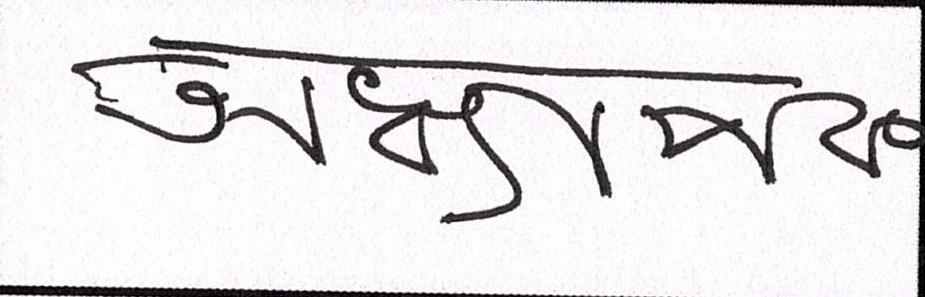 অধ্যাপক